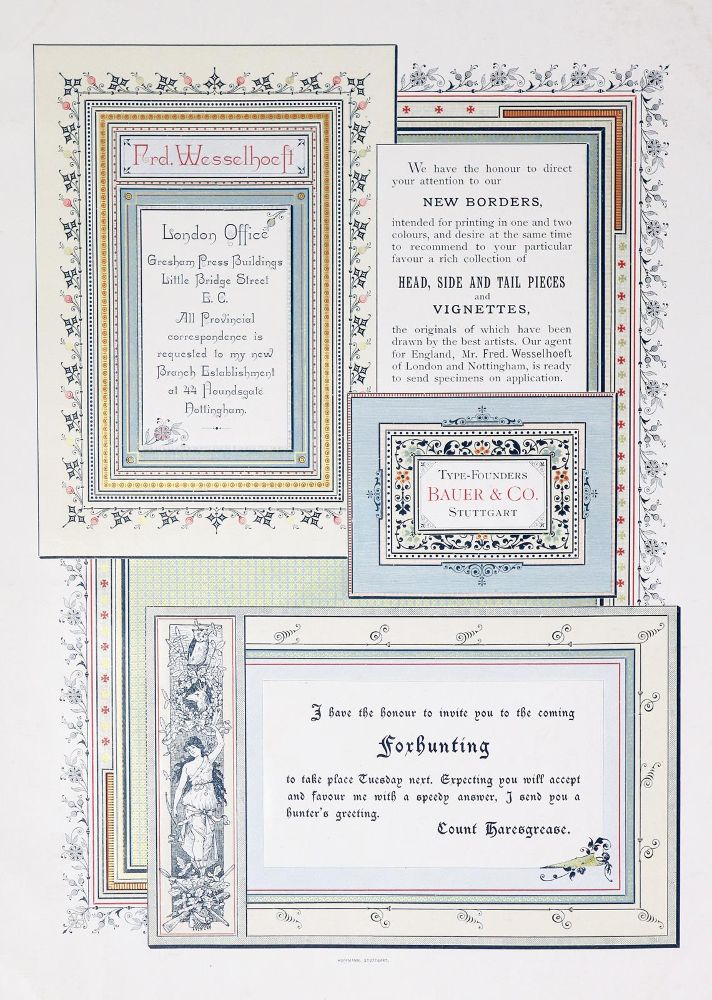 Frd. Wesselhoeft
London Office
Gresham Press Buildings
Little Bridge Street
E. C.
All Provincial
correspondence is
requested to my new
Branch Establishment
at 44 Houndsgate
Nottingham.
We have the honour to direct
your attention to our
NEW BORDERS,
intended for printing in one and two
colours, and desire at the same time
to recommend to your particular
favour a rich collection of
HEAD, SIDE AND TAIL PIECES
and
VIGNETTES,
the originals of which have been
drawn by the best artists. Our agent
for England, Mr. Fred. Wesselhoeft
of London and Nottingham, is ready
to send specimens on application.
TYPE-FOUNDERS
BAUER & CO.
STUTTGART
I have the honour to invite you to the coming
Foxhunting
to take place Tuesday next. Expecting you will accept
and favour me with a speedy answer, I send you a
hunter's greeting.
Count Haresgrease.
HOFFMANN, STUTTGART.